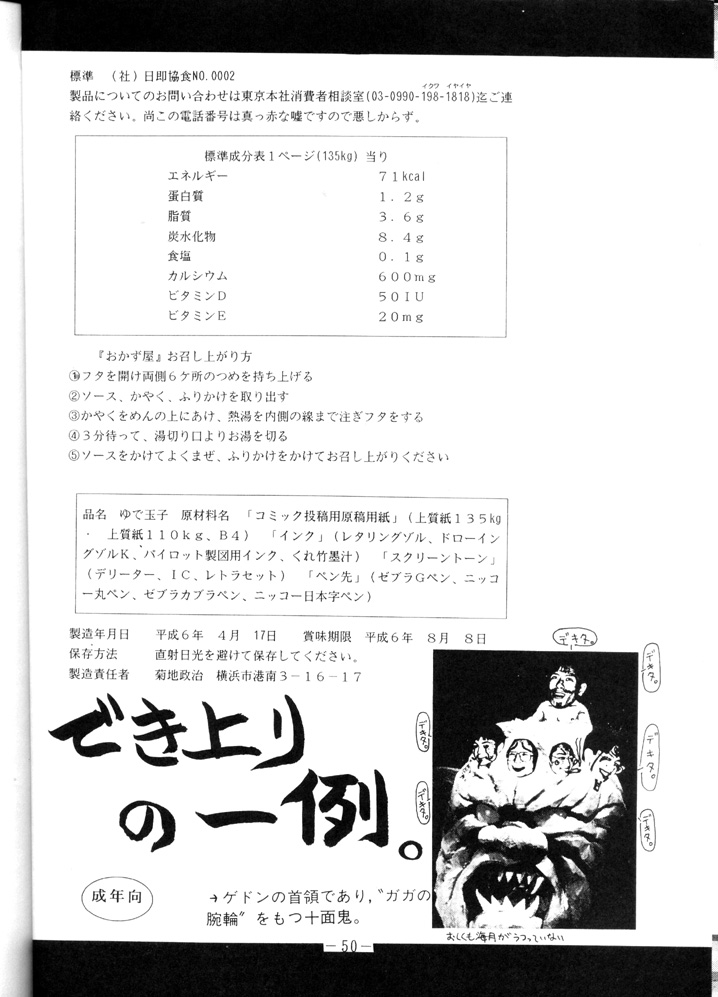 標準　（社）日即協食NO.0002
イクワ　イヤイヤ
製品についてのお問い合わせは東京本社消費者相談室(03-0990-198-1818)迄ご連
絡ください。尚この電話番号は真っ赤な嘘ですので悪しからず。
標準成分表１ページ(135kg) 当り
エネルギー　７１kcal
蛋白質　１．２ｇ
脂質　３．６ｇ
炭水化物　８．４ｇ
食塩　０．１ｇ
カルシウム　６００mg
ビタミンＤ　５０ＩＵ
ビタミンＥ　２０mg
『おかず屋』お召し上がり方
①フタを開け両側６ケ所のつめを持ち上げる
②ソース、かやく、ふりかけを取り出す
③かやくをめんの上にあけ、熱湯を内側の線まで注ぎフタをする
④３分待って、湯切り口よりお湯を切る
⑤ソースをかけてよくまぜ、ふりかけをかけてお召し上がりください
品名　ゆで玉子　原材料名　「コミック投稿用原稿用紙」（上質紙１３５kg
・　上質紙１１０ｋｇ、Ｂ４）　「インク」（レタリングゾル、ドローイン
グゾルＫ、パイロット製図用インク、くれ竹墨汁）　「スクリーントーン」
（デリーター、ＩＣ、レトラセット）　「ペン先」（ゼブラＧペン、ニッコ
ー丸ペン、ゼブラカブラペン、ニッコー日本字ペン）
製造年月日　平成６年　４月　17日　賞味期限　平成６年　８月　８日
保存方法　直射日光を避けて保存してください。
製造責任者　菊地政治　横浜市港南３－１６－１７
デキタ。
デキタ。
デキタ。
デキタ。
デキタ。
デキタ。
でき上り
の一例。
成年向
→ゲドンの首領であり，〝ガガの
腕輪〟をもつ十面鬼。
おしくも海月がうつっていない
－50－